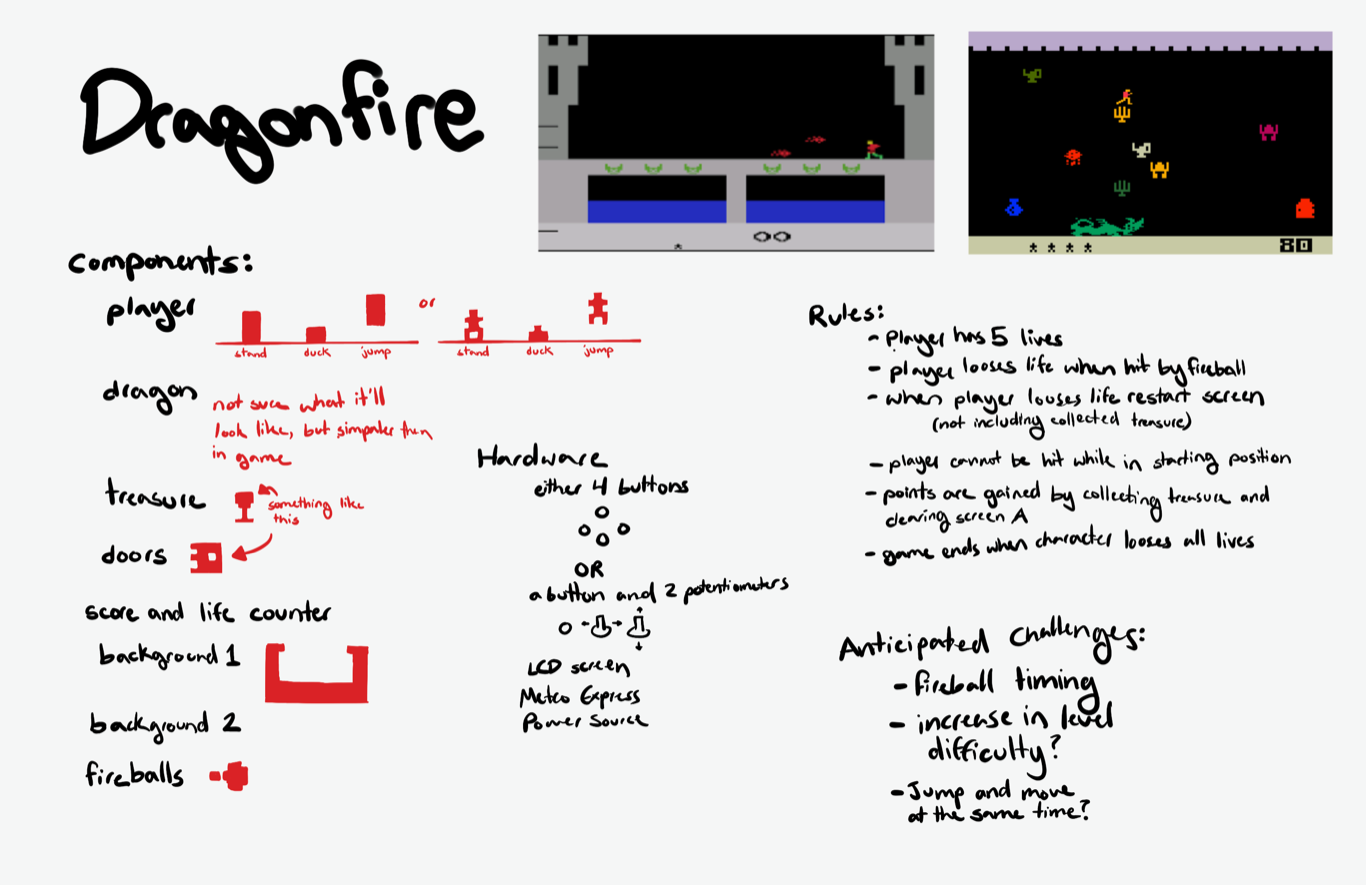 Dragonfire
80
components:
player
or
stand
duck
jump
stand
duck
jump
dragon
not sure what it'll
look like, but simpaler then
in game
treasure
something like
this
doors
score and life counter
background 1
background 2
fireballs
Hardware
either 4 buttons
OR
a button and 2 potentiometers
LCD screen
Metro Express
Power Source
Rules:
- Player has 5 lives
- player looses life when hit by fireball
- when player louses life restart screen
(not including collected treasure)
- player cannot be hit while in starting position
- points are gained by collecting treasure and
clearing screen A
- game ends when character looses all lives
Anticipated Challenges:
- fireball timing
- increase in level
difficulty?
- Jump and move
at the same time?